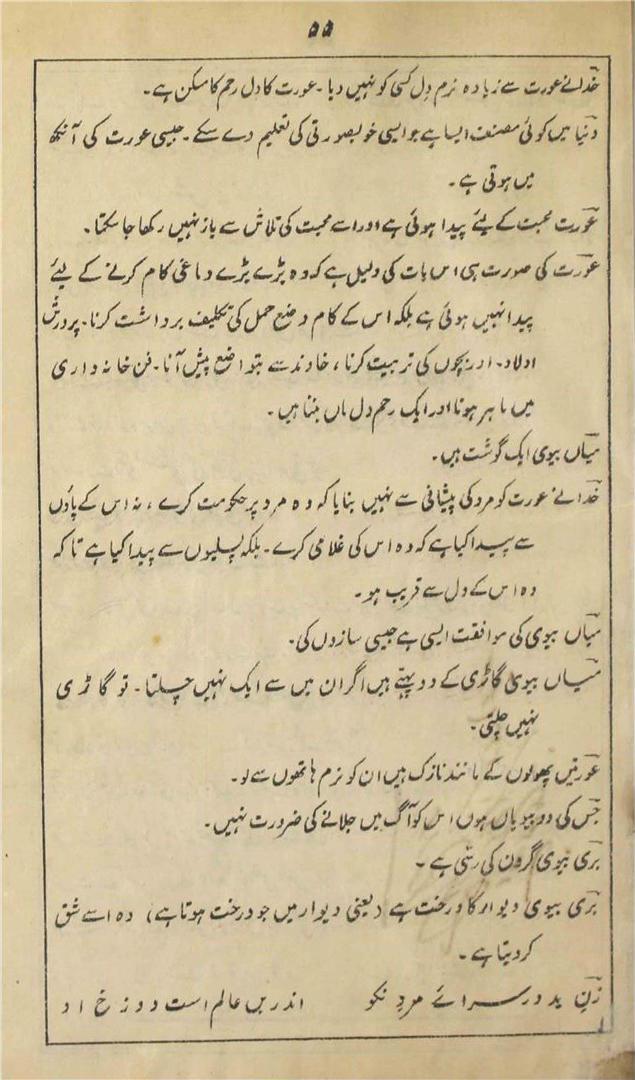 ۵۵
خدا نے عورت سے زیادہ نرم دل کسی کو نہیں دیا۔ عورت کا دل رحم کا مسکن ہے۔
دنیا میں کوئی مصنف ایسا ہے جو ایسی خوبصورتی کی تعلیم دے سکے۔ جیسی عورت کی آنکھ
میں ہوتی ہے۔
عورت محبت کے لیئے پیدا ہوئی ہے اور اسے محبت کی تلاش سے باز نہیں رکھا جا سکتا۔
عورت کی صورت ہی اس بات کی دلیل ہے کہ وہ بڑے بڑے دماغی کام کرنے کے لیئے
پیدا نہیں ہوئی ہے بلکہ اس کے کام وضع حمل کی تکلیف برداشت کرنا۔ پرورش
اولاد۔ اور بچوں کی تربیت کرنا، خاوند سے بتواضع پیش آنا۔ فن خانہ داری
میں ماہر ہونا اور ایک رحم دل ماں بننا ہیں۔
میاں بیوی ایک گوشت ہیں۔
خدا نے عورت کو مرد کی پیشانی سے نہیں بنایا کہ وہ مرد پر حکومت کرے، نہ اس کے پاؤں
سے پیدا کیا ہے کہ وہ اس کی غلامی کرے۔ بلکہ پسلیوں سے پیدا کیا ہے تاکہ
وہ اس کے دل سے قریب ہو۔
میاں بیوی کی موافقت ایسی ہے جیسی سازوں کی۔
میاں بیوی گاڑی کے دو پہئے ہیں اگر ان میں سے ایک نہیں چلتا۔ تو گاڑی
نہیں چلتی۔
عورتیں پھولوں کے مانند نازک ہیں ان کو نرم ہاتھوں سے لو۔
جس کی دو بیویاں ہوں اس کو آگ میں جلانے کی ضرورت نہیں۔
بری بیوی گردن کی رسی ہے۔
بری بیوی دیوار کا درخت ہے (یعنی دیوار میں جو درخت ہوتا ہے) وہ اسے شق
کر دیتا ہے۔
زنِ بد در سرائے مردِ نکو اندریں عالم است دوزخ او